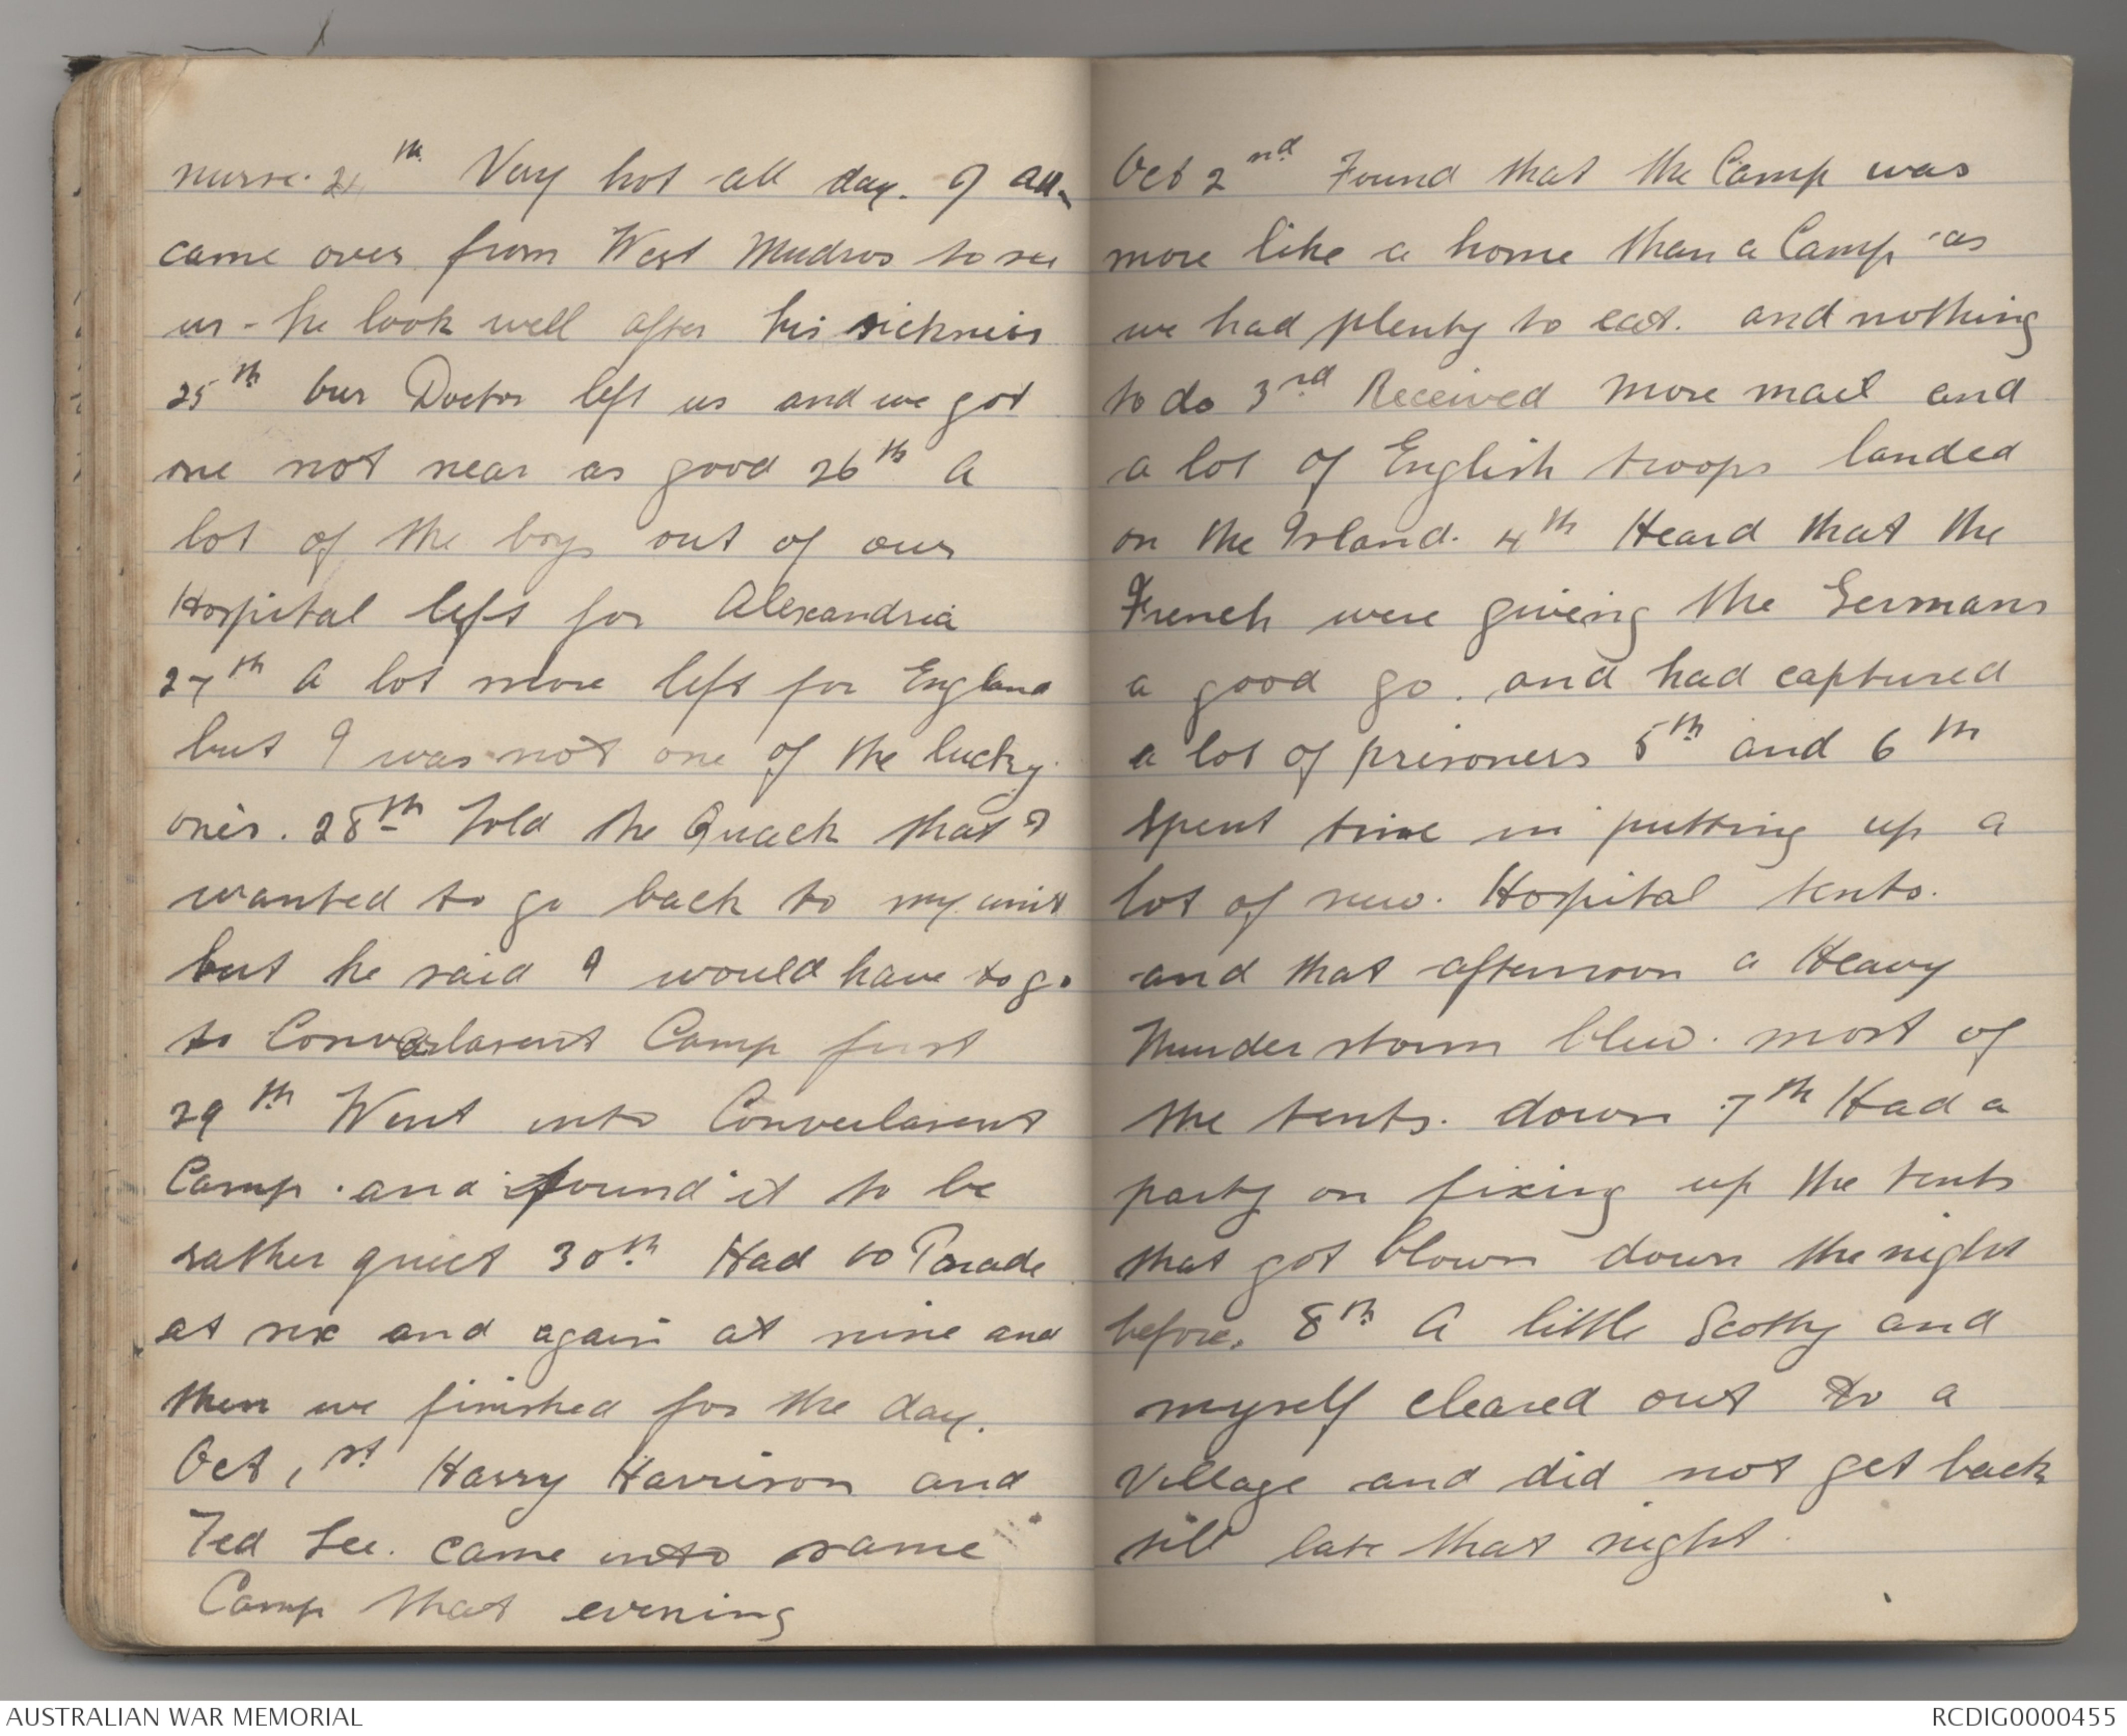 nurse. 24th Very hot all day. J all-
came over from West Mudros to see
us - he look well after his sickness
25th Our Doctor left us and we got
one not near as good 26th A
lot of the boys out of our
Hospital left for Alexandria
27th A lot more left for England
but I was not one of the lucky
ones. 28th Told the Quack that I
wanted to go back to my unit
but he said I would have to go
to Convalasent Camp first
29th Went into Conveulasent
Camp. and found it to be
rather quiet 30th Had to Parade
at six and again at nine and
then we finished for the day.
Oct 1st Harry Harrison and
Ted Lee. came into same
Camp that evening
Oct 2nd Found that the Camp was
more like a home than a Camp as
we had plenty to eat. and nothing
to do 3rd Received more mail and
a lot of English troops landed
on the Island. 4th Heard that the
French were giving the Germans
a good go. and had captured
a lot of prisoners 5th and 6th
spent time in putting up a
lot of new. Hospital tents.
and that afternoon a Heavy
Thunder storm blew. most of
the tents. down 7th Had a
party on fixing up the tents
that got blown down the night
before. 8th A little Scotty and
myself cleared out to a
Village and did not get back
till late that night.
AUSTRALIAN WAR MEMORIAL
RCDIG0000455